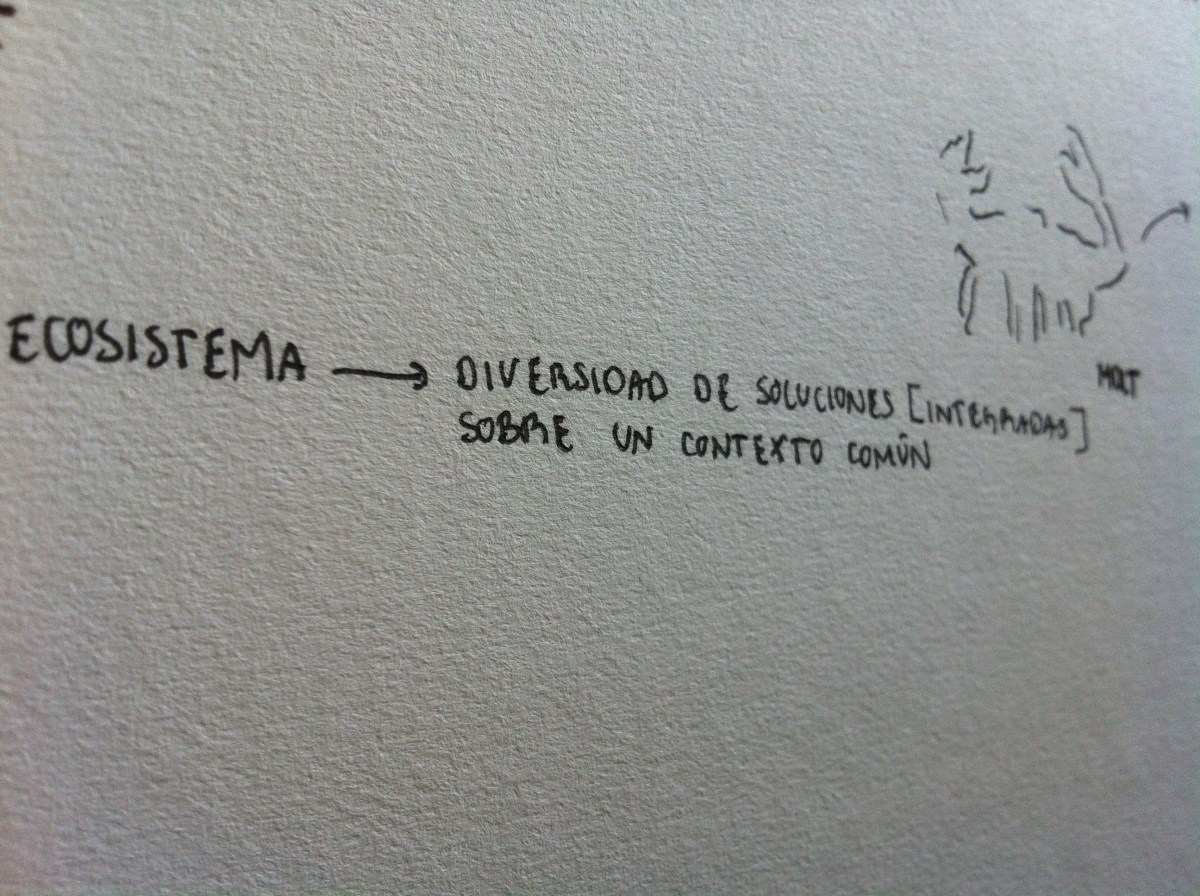 ECOSISTEMA → DIVERSIDAD DE SOLUCIONES [INTEGRADAS]
SOBRE UN CONTEXTO COMÚN